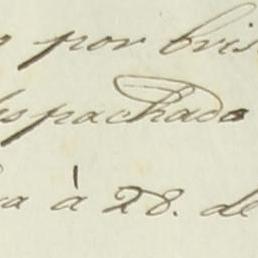 por
despachado
à 28. de